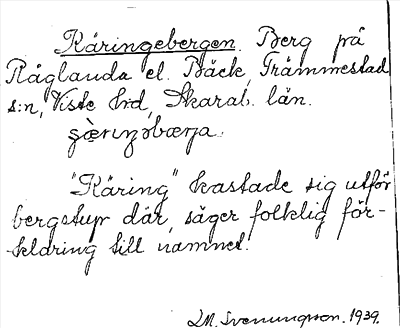 Käringebergen. Berg på
Råglanda el. Bäck, Främmestad
s:n, Viste hrd, Skarab. län.
"Käring" kastade sig utför
bergstup där, säger folklig för-
klaring till namnet.
I.M. Svenungsson. 1939.